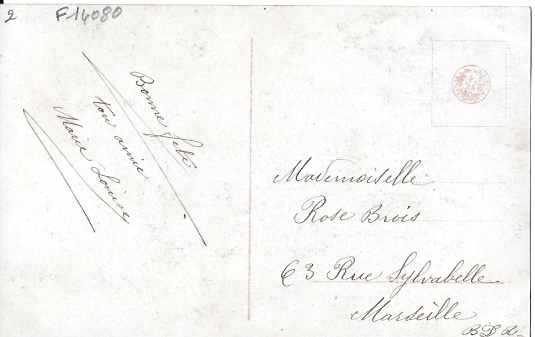 2 F14080
Bonne fête
ton amie
Marie Louise
Mademoiselle
Rose Brois
63 Rue Sylvabelle
Marseille
BDR